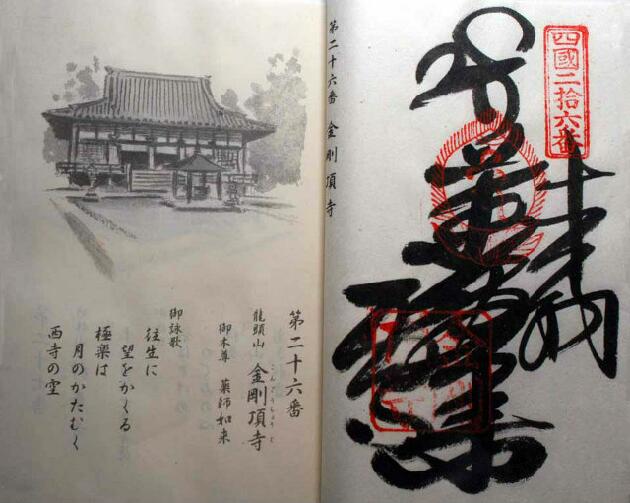 四國二拾六番
第二十六番 金剛頂寺
第二十六番
龍頭山 金剛頂寺
こんごうちょうじ
御本尊 薬師如来
御詠歌
往生に
望をかくる
極楽は
月のかたむく
西寺の空